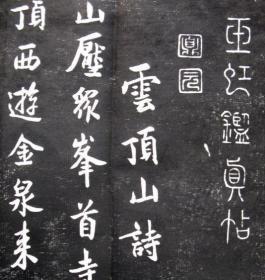 亜虹鑑真帖
雲頂山詩
山壓眾峯首寺
頂西遊金泉来